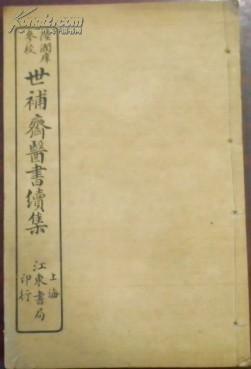 陸潤庠
校
世補齋醫書續集
上海
江東書局
印行